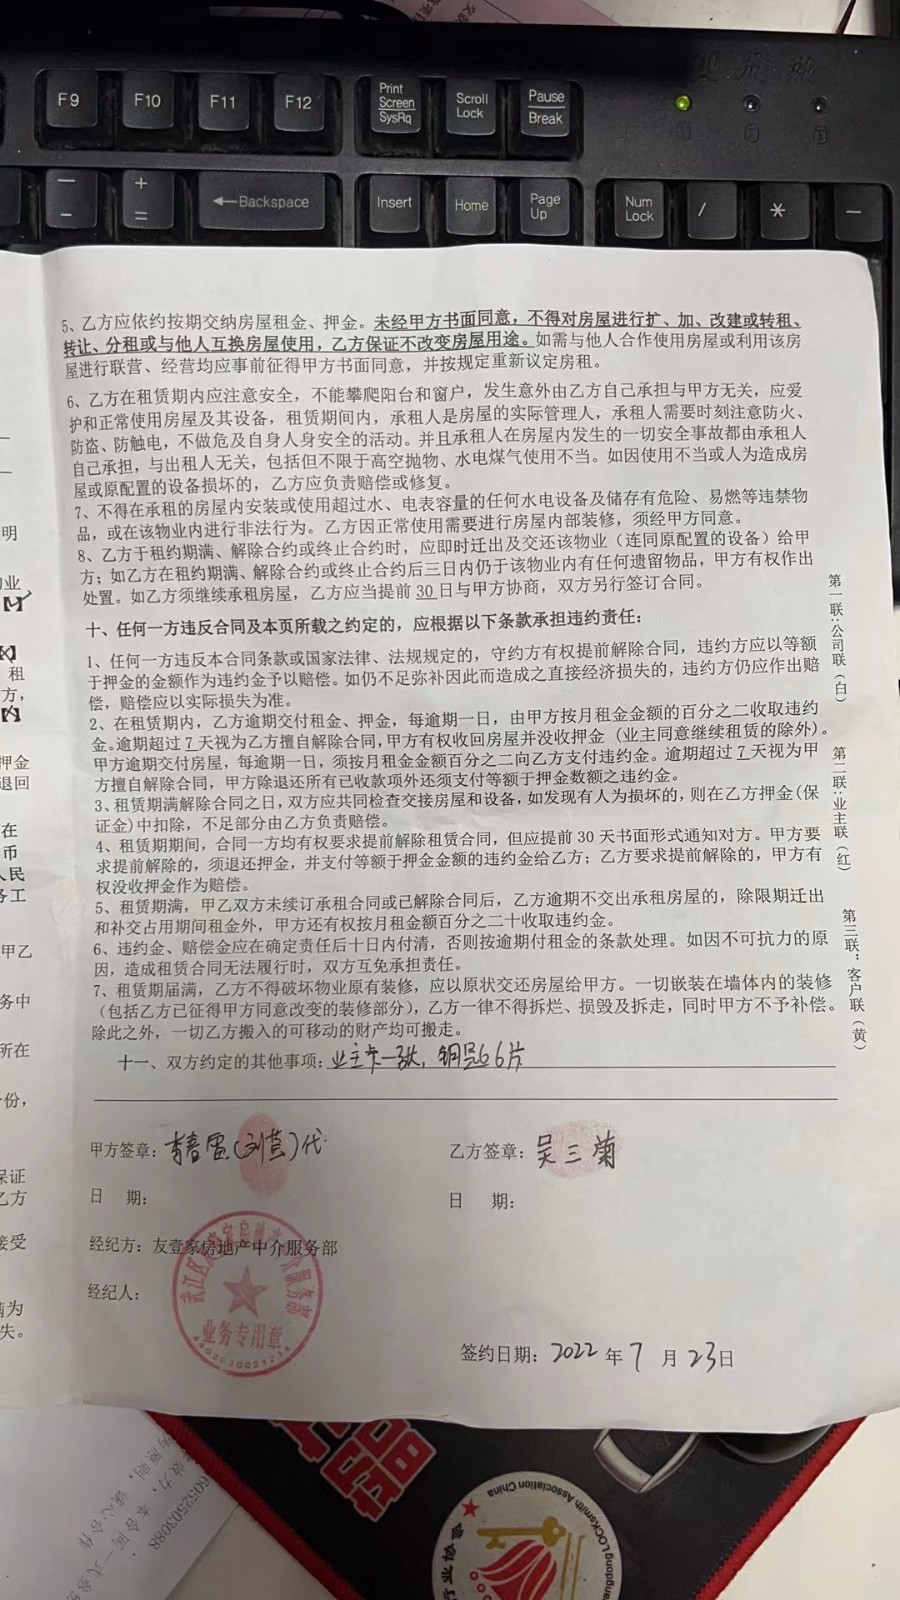 F9 F10 F11 F12 Print Screen SysRq Scroll Lock Pause Break
Backspace Insert Home Page Up Num Lock / * −
5、乙方应依约按期交纳房屋租金、押金。未经甲方书面同意，不得对房屋进行扩、加、改建或转租、
转让、分租或与他人互换房屋使用，乙方保证不改变房屋用途。如需与他人合作使用房屋或利用该房
屋进行联营、经营均应事前征得甲方书面同意，并按规定重新议定房租。
6、乙方在租赁期内应注意安全，不能攀爬阳台和窗户，发生意外由乙方自己承担与甲方无关，应爱
护和正常使用房屋及其设备，租赁期间内，承租人是房屋的实际管理人，承租人需要时刻注意防火、
防盗、防触电，不做危及自身人身安全的活动。并且承租人在房屋内发生的一切安全事故都由承租人
自己承担，与出租人无关，包括但不限于高空抛物、水电煤气使用不当。如因使用不当或人为造成房
屋或原配置的设备损坏的，乙方应负责赔偿或修复。
7、不得在承租的房屋内安装或使用超过水、电表容量的任何水电设备及储存有危险、易燃等违禁物
品，或在该物业内进行非法行为。乙方因正常使用需要进行房屋内部装修，须经甲方同意。
8、乙方于租约期满、解除合约或终止合约时，应即时迁出及交还该物业（连同原配置的设备）给甲
方；如乙方在租约期满、解除合约或终止合约后三日内仍于该物业内有任何遗留物品，甲方有权作出
处置。如乙方须继续承租房屋，乙方应当提前 30 日与甲方协商，双方另行签订合同。
十、任何一方违反合同及本页所载之约定的，应根据以下条款承担违约责任：
1、任何一方违反本合同条款或国家法律、法规规定的，守约方有权提前解除合同，违约方应以等额
于押金的金额作为违约金予以赔偿。如仍不足弥补因此而造成之直接经济损失的，违约方仍应作出赔
偿，赔偿应以实际损失为准。
2、在租赁期内，乙方逾期交付租金、押金，每逾期一日，由甲方按月租金金额的百分之二收取违约
金。逾期超过 7 天视为乙方擅自解除合同，甲方有权收回房屋并没收押金（业主同意继续租赁的除外）。
甲方逾期交付房屋，每逾期一日，须按月租金金额百分之二向乙方支付违约金。逾期超过 7 天视为甲
方擅自解除合同，甲方除退还所有已收款项外还须支付等额于押金数额之违约金。
3、租赁期满解除合同之日，双方应共同检查交接房屋和设备，如发现有人为损坏的，则在乙方押金(保
证金)中扣除，不足部分由乙方负责赔偿。
4、租赁期期间，合同一方均有权要求提前解除租赁合同，但应提前 30 天书面形式通知对方。甲方要
求提前解除的，须退还押金，并支付等额于押金金额的违约金给乙方；乙方要求提前解除的，甲方有
权没收押金作为赔偿。
5、租赁期满，甲乙双方未续订承租合同或已解除合同后，乙方逾期不交出承租房屋的，除限期迁出
和补交占用期间租金外，甲方还有权按月租金额百分之二十收取违约金。
6、违约金、赔偿金应在确定责任后十日内付清，否则按逾期付租金的条款处理。如因不可抗力的原
因，造成租赁合同无法履行时，双方互免承担责任。
7、租赁期届满，乙方不得破坏物业原有装修，应以原状交还房屋给甲方。一切嵌装在墙体内的装修
（包括乙方已征得甲方同意改变的装修部分），乙方一律不得拆烂、损毁及拆走，同时甲方不予补偿。
除此之外，一切乙方搬入的可移动的财产均可搬走。
十一、双方约定的其他事项：业主卡一张，钥匙6片
第一联：公司联（白）
第二联：业主联（红）
第三联：客户联（黄）
甲方签章：
乙方签章：吴三菊
日 期：
日 期：
经纪方：友壹家房地产中介服务部
经纪人：
业务专用章
4402030021234
签约日期：2022 年 7 月 23 日
6052503088
行业协会
Locksmith Association China